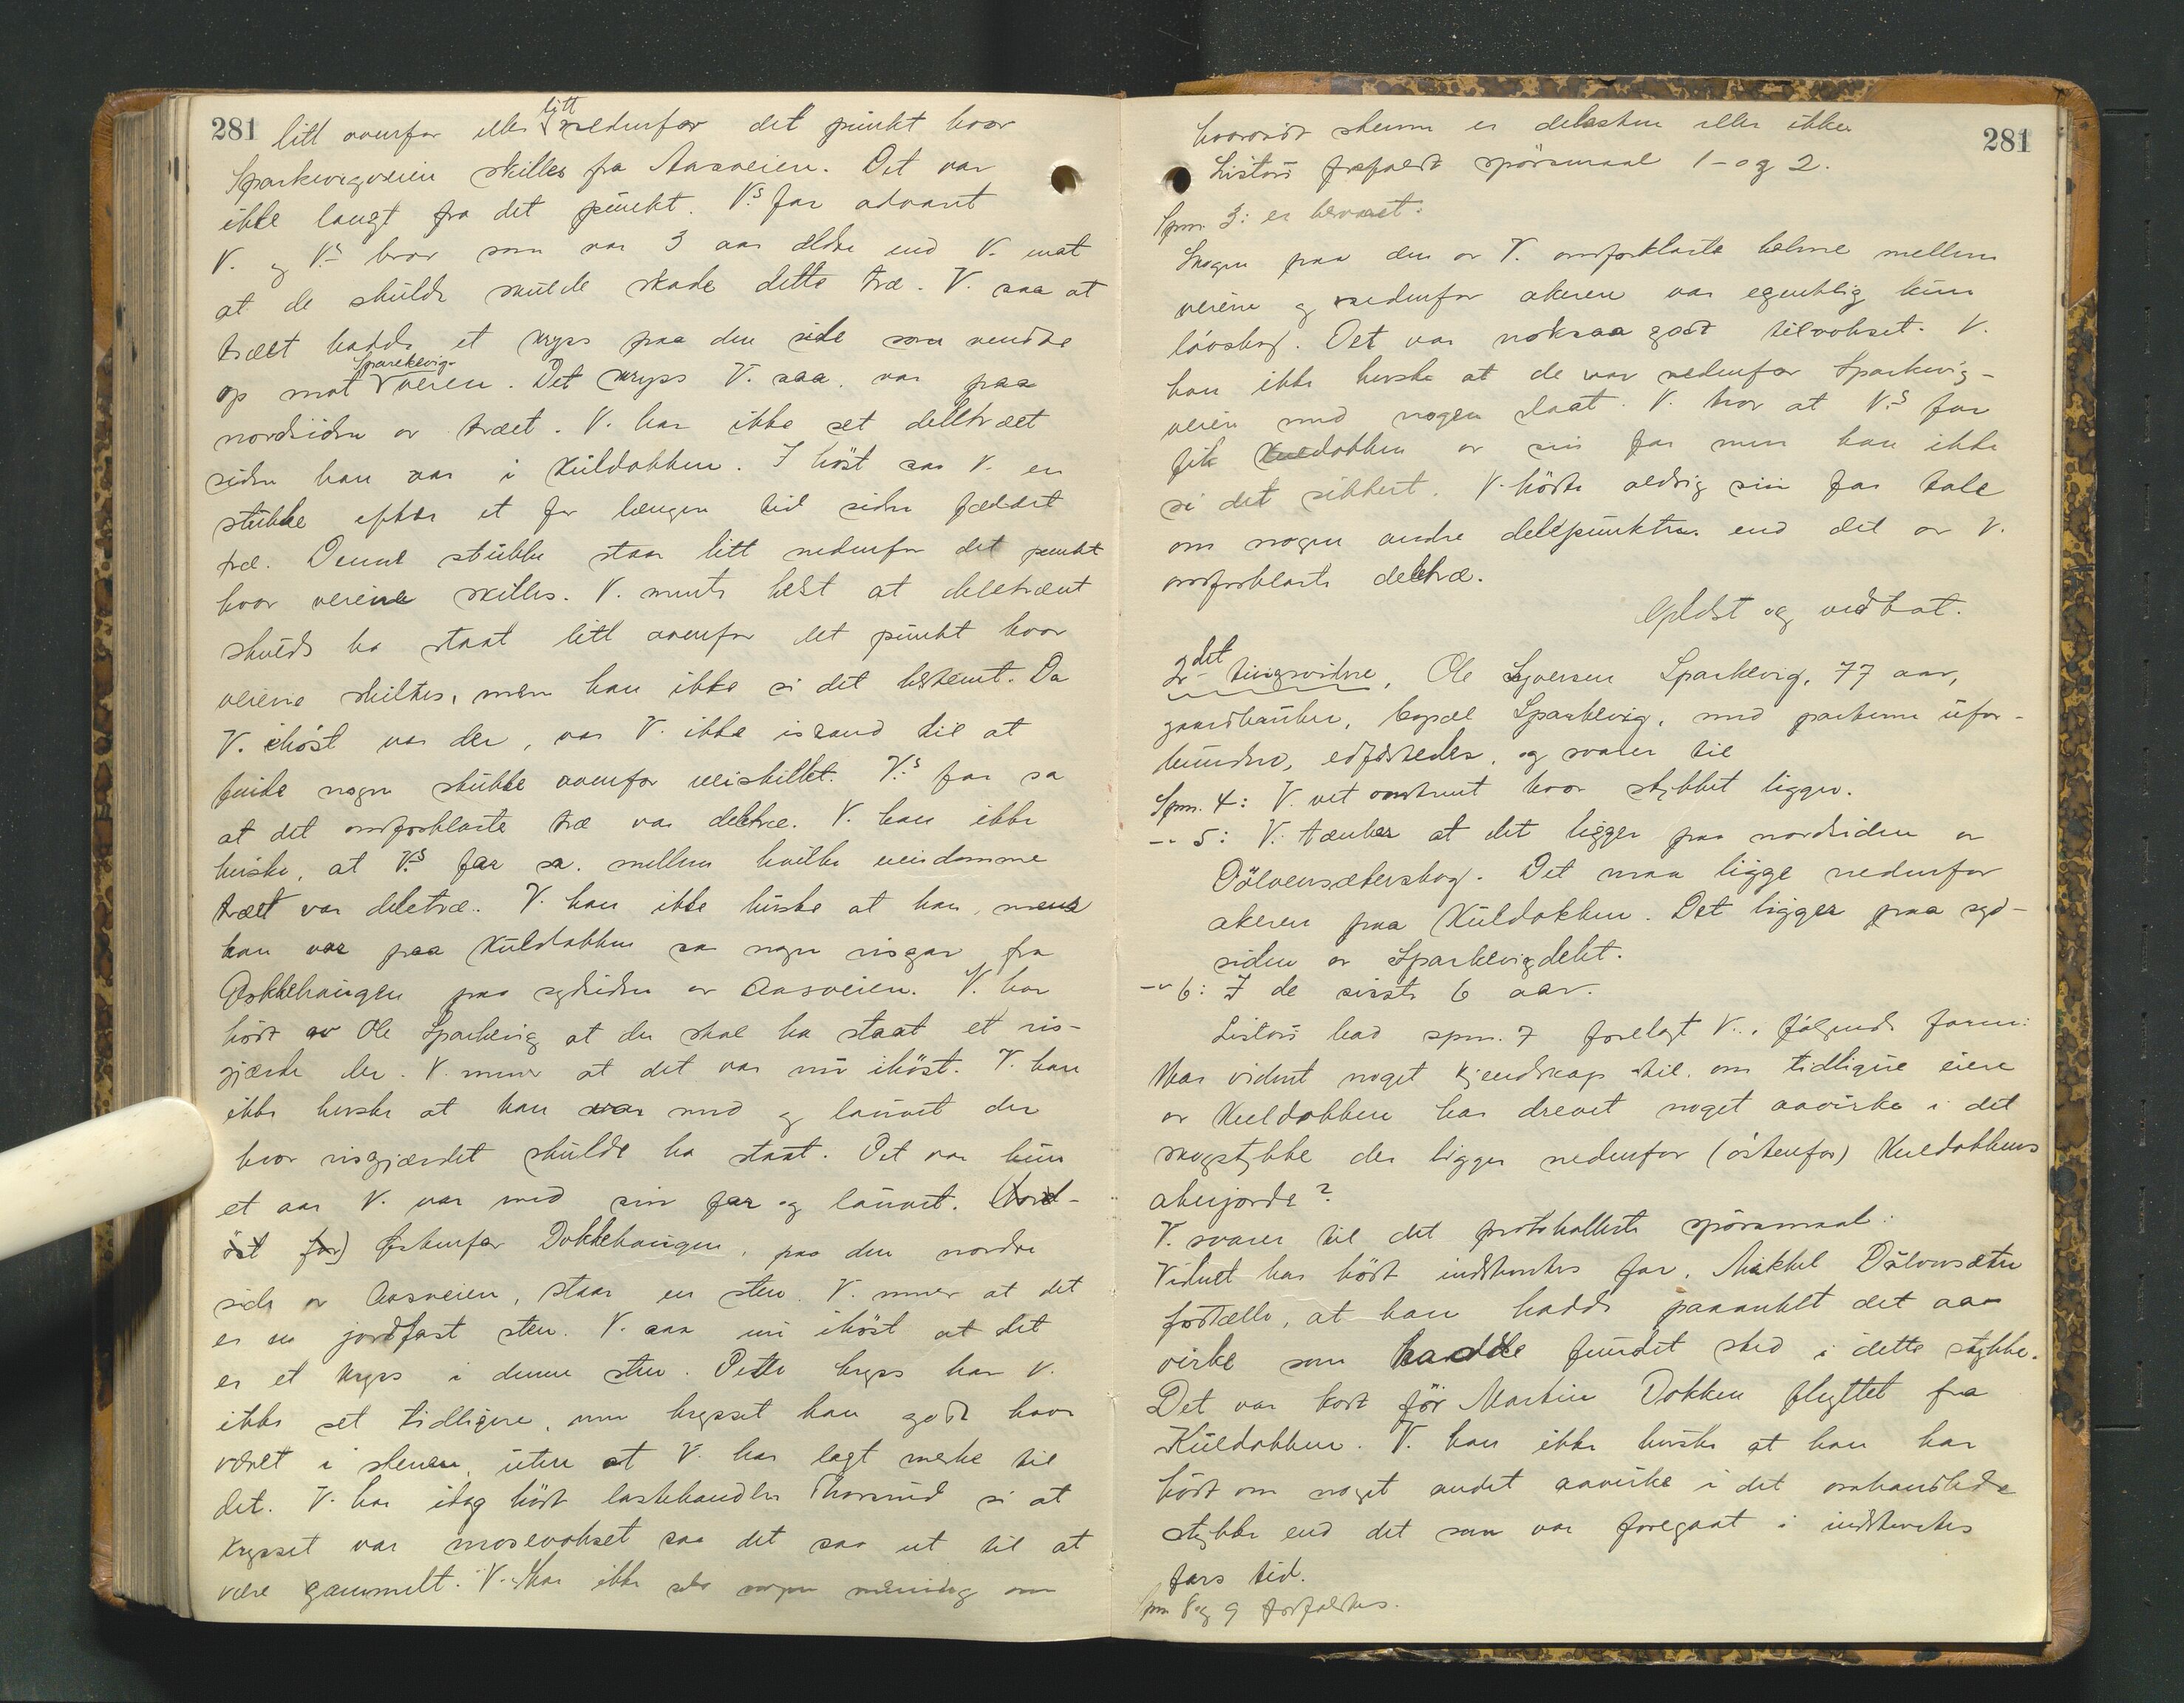 281
litt ovenfor eller litt nedenfor det punkt hvor
Sparkevigveien skilles fra Aasveien. Det var
ikke langt fra det punkt. V.s far advaret
V. og V.s bror som var 3 aar ældre end V. mot
at de skulde skade dette træ. V. saa at
træet hadde et kryss paa den side som vendte
op mot Sparekevig-veien. Det kryss V. saa, var paa
nordsiden av træet. V. har ikke set deletræet
siden han var i Kuldokken. I høst saa V. en
stubbe efter et for længere tid siden fældet
træ. Denne stubbe staar litt nedenfor det punkt
hvor veiene skilles. V. mente helst at deletræet
skulde ha staat litt ovenfor det punkt hvor
veiene skiltes, men kan ikke si det bestemt. Da
V. ihøst var der, var V. ikke istand til at
finde nogen stubbe ovenfor veiskillet. V.s far sa
at det omforklarte træ var deletræ. V. kan ikke
huske, at V.s far sa, mellem hvilke eiendomme
træet var deletræ. V. kan ikke huske at han, mens
han var paa Kuldokken saa nogen risgar fra
Dokkehaugen paa sydsiden av Aasveien. V. har
hørt av Ole Sparkevig at der skal ha staat et ris-
gjærde der. V. mener at det var nu ihøst. V. kan
ikke huske at han var med og lauvet der
hvor risgjærdet skulde ha staat. Det var kun
et aar V. var med sin far og lauvet. (Nord-
øst for) Østenfor Dokkehaugen, paa den nordre
side av Aasveien, staar en sten. V. mener at det
er en jordfast sten. V. saa nu ihøst at det
er et kryss i denne sten. Dette kryss har V.
ikke set tidligere, men krysset kan godt have
været i stenen, uten at V. har lagt merke til
det. V. har idag hørt lastehandler Thorsrud si at
krysset var mosevokset saa det saa ut til at
være gammelt. V. kan ikke ha nogen mening om
281
hvorvidt stenen er delesten eller ikke.
Listou frafaldt spørsmaal 1 og 2.
Spm. 3: er besvaret.
Skogen paa den av V. omforklarte kolme mellem
veiene og nedenfor akeren var egentlig kun
løvskog. Det var noksaa godt tilvokset. V.
kan ikke huske at de var nedenfor Sparkevig-
veien med nogen slaat. V. tror at V.s far
fik Kuldokken av sin far men kan ikke
si det sikkert. V. hørte aldrig sin far tale
om nogen andre delepunkter end det av V.
omforklarte deletræ.
Oplæst og vedtat.
2det tingsvidne, Ole Syversen Sparkevig, 77 aar,
gaardbruker, bopæl Sparkevig, med parterne ufor-
bundne, edfæstedes, og svarer til
Spm. 4: V. vet omtrent hvor stykket ligger.
-"- 5: V. tænker at det ligger paa nordsiden av
Dølvensæterskog. Det maa ligge nedenfor
akeren paa Kuldokken. Det ligger paa syd-
siden av Sparkevigdelet.
-"- 6: I de sisste 6 aar.
Listou bad spm. 7 forelagt V. i følgende form:
Har vidnet noget kjendskap til, om tidligere eiere
av Kuldokken har drevet noget aavirke i det
skogstykke der ligger nedenfor (østenfor) Kuldokkens
akerjorde?
V. svarer til det protokollerte spørsmaal:
Vidnet har hørt indstevntes far, Mikkel Dølvensæter
fortælle, at han hadde paaanket det aa-
virke som hadde fundet sted i dette stykke.
Det var kort før Martin Dokken flyttet fra
Kuldokken. V. kan ikke huske at han har
hørt om noget andet aavirke i det omhandlede
stykke end det som var foregaat i indstevntes
fars tid.
Spm 8 og 9 frafaldtes.